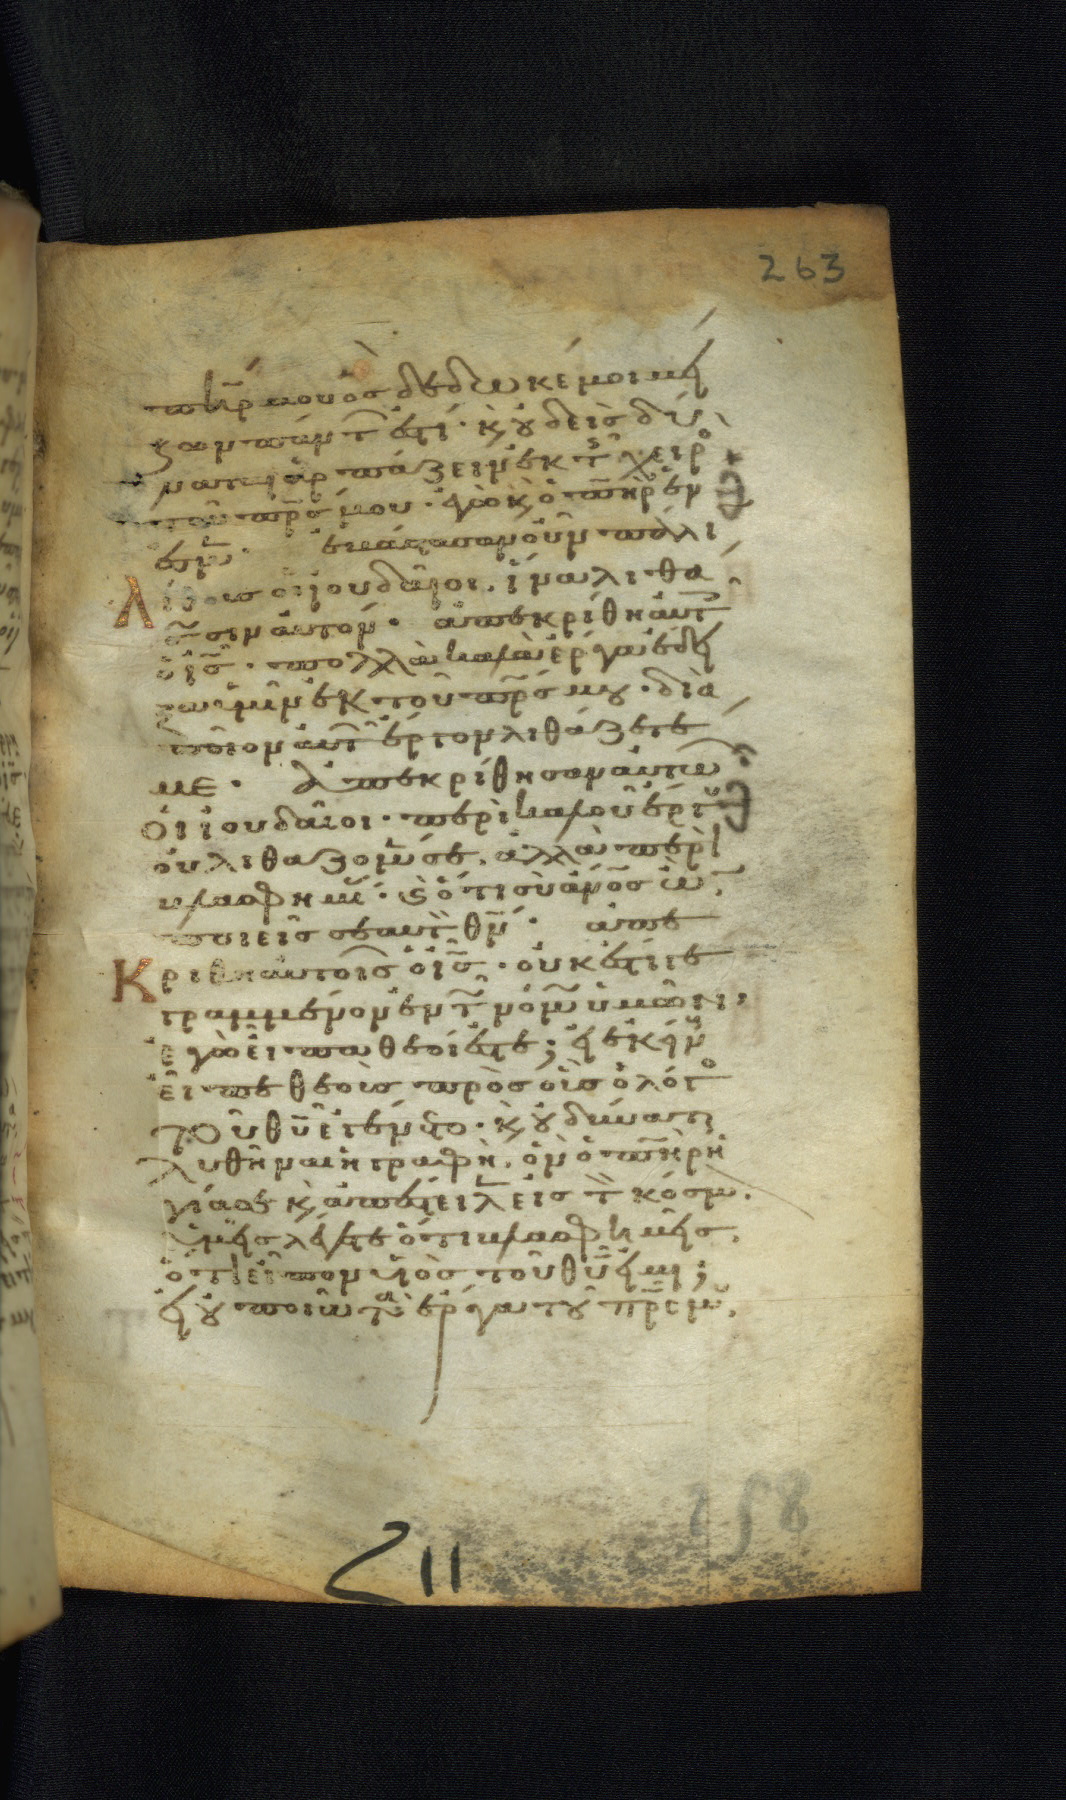 263
πηρ μου ὃς δέδωκέ μοι μεί
ζων πάντ ἐστί · κ οὐδεὶς δύ
ναται ἁρπάζειν ἐκ τ χειρ
τοῦ πρς μου · ἐγὼ κ ὁ πηρ ἕν
ἐσμ · ἐβάστασαν οὖν πάλι
λίθους οἱ ἰουδαῖοι · ἵνα λιθά
σωσιν αὐτόν · ἀπεκρίθη αὐτ
ὁ ις · πολλὰ καλὰ ἔργα ἔδει
ξα ὑμῖν ἐκ τοῦ πρς μου · διὰ
ποῖον αὐτ ἔργον λιθάζετέ
με · ἀπεκρίθησαν αὐτῶ
οἱ ἰουδαῖοι · περὶ καλοῦ ἔργου
οὐ λιθάζομέν σε · ἀλλὰ περὶ
βλασφημ · κ ὅτι σὺ ανος ὢν
ποιεῖς σεαυτὸν θν · ἀπε
κρίθη αὐτοῖς ὁ ις · οὐκ ἔστι γε
γραμμένον ἐν τ νόμω ὑμῶν ·
ἐγὼ εἶπα θεοί ἐστε ; εἰ ἐκείν
εἶπε θεοὺς πρὸς οὓς ὁ λόγ
τοῦ θυ ἐγένετο · κ οὐ δύναται
λυθῆναι ἡ γραφή · ὃν ὁ πηρ ἡ
γίασε κ ἀπέστειλεν εἰς τ κόσμ ·
ὑμεῖς λέγετε ὅτι βλασφημεῖς ·
ὅτι εἶπον υἱὸς τοῦ θυ εἰμι ;
εἰ οὐ ποιῶ τὰ ἔργα τοῦ πρς μου ·
258
211